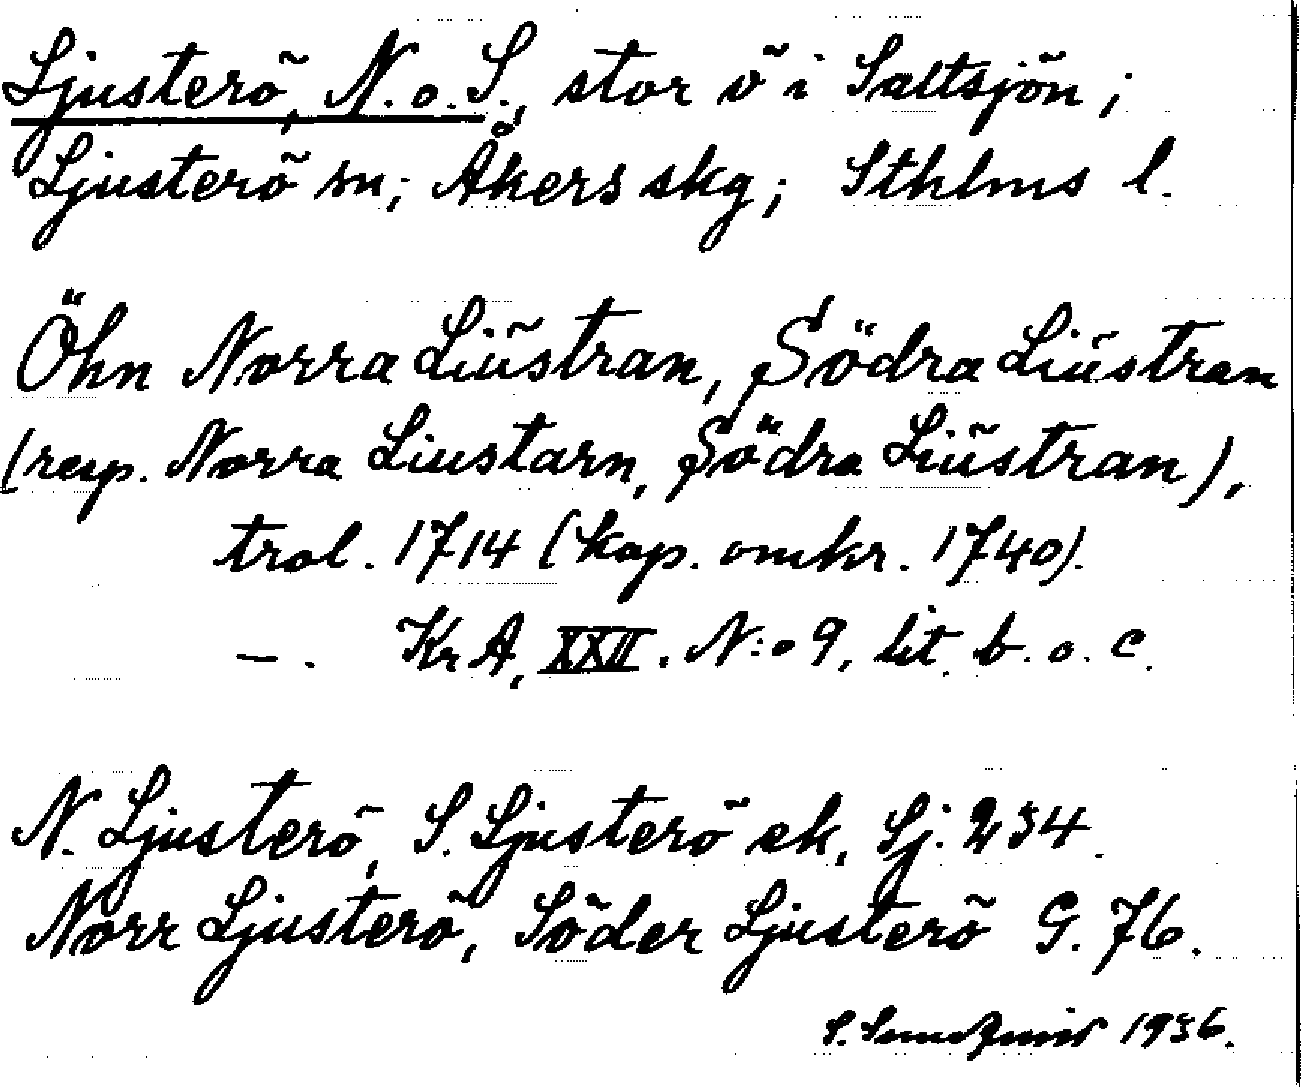 Ljusterö, N. o. S., stor ö i Saltsjön;
Ljusterö sn; Åkers skg; Sthlms l.
Öhn Norra Liüstran, Södra Liüstran
(resp. Norra Liustarn, Södra Liüstran),
trol. 1714 (kop. omkr. 1740).
—. KrA, XXII. N:o 9, lit. b. o. c.
N. Ljusterö, S. Ljusterö ek, Sj. 234.
Norr Ljusterö, Söder Ljusterö G. 76.
S. 1936.